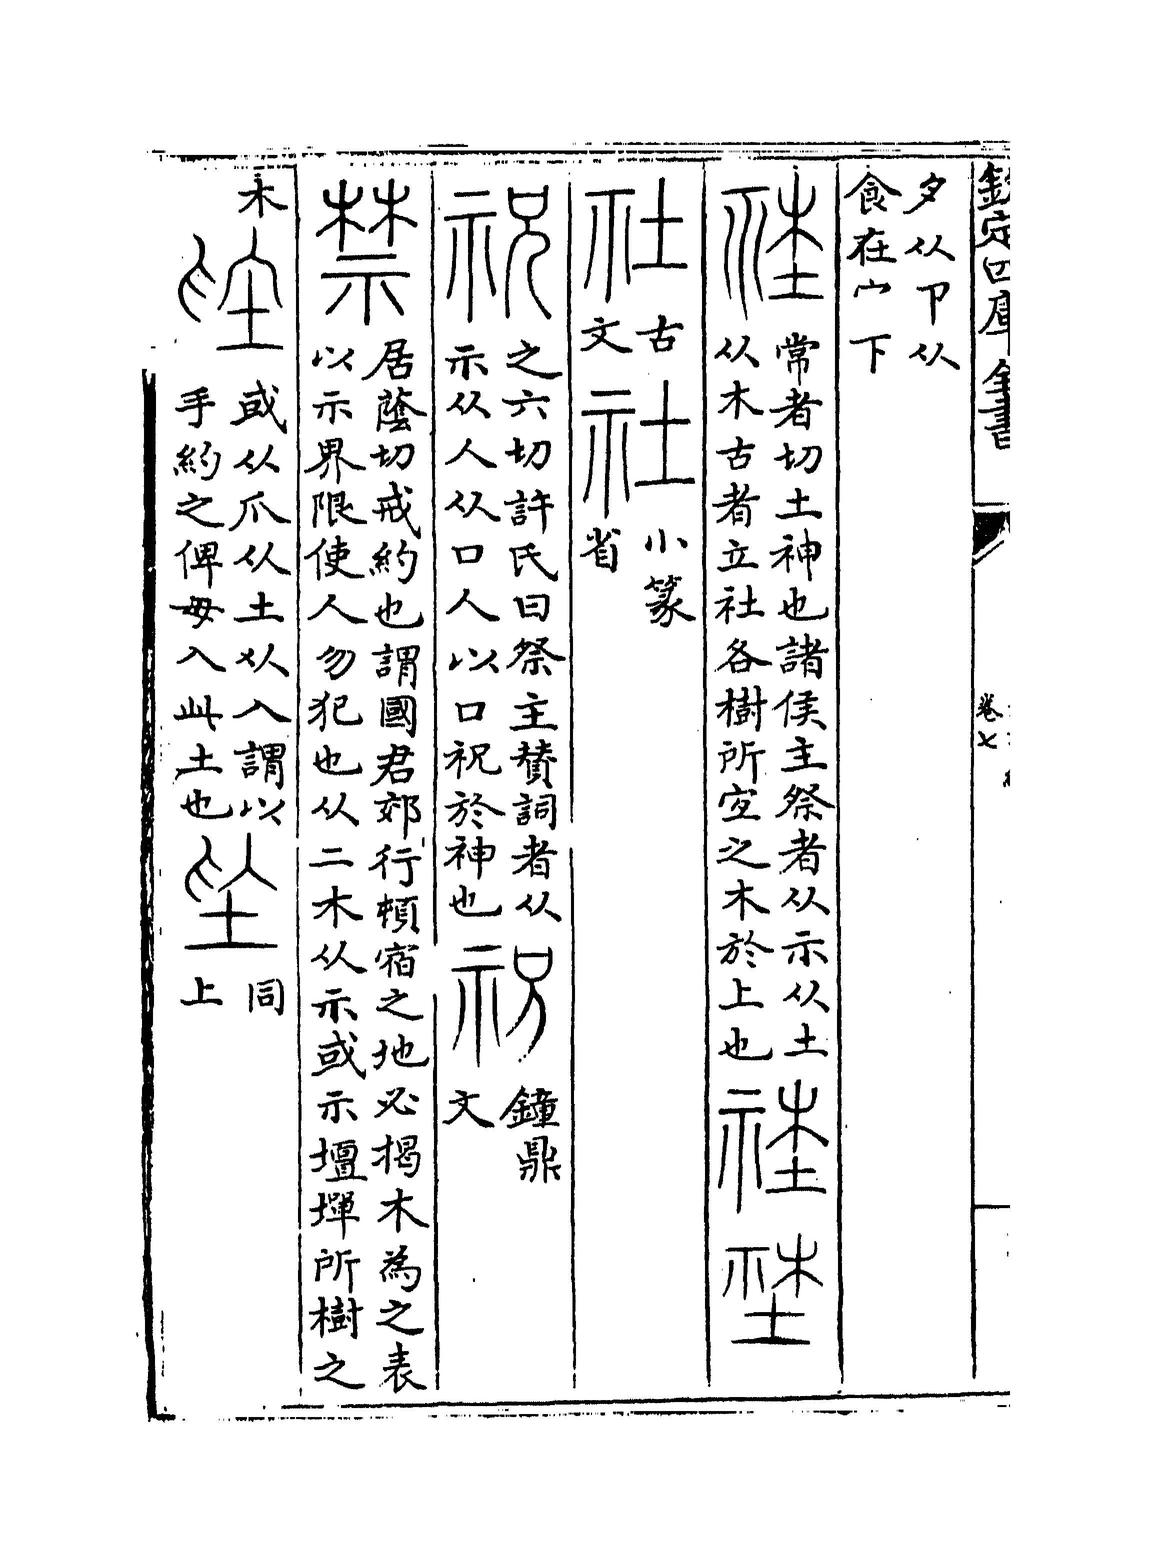 欽定四庫全書
卷七
夕从卩从
食在宀下
常者切土神也諸侯主祭者从示从土
从木古者立社各樹所宐之木於上也
社
古
文
社
小篆
省
祝
之六切許氏曰祭主賛詞者从
示从人从口人以口祝於神也
祝
鐘鼎
文
禁
居蔭切戒約也謂國君郊行頓宿之地必揭木為之表
以示界限使人勿犯也从二木从示或示壇墠所樹之
木
或从爪从土从入謂以
手約之俾毋入此土也
同
上